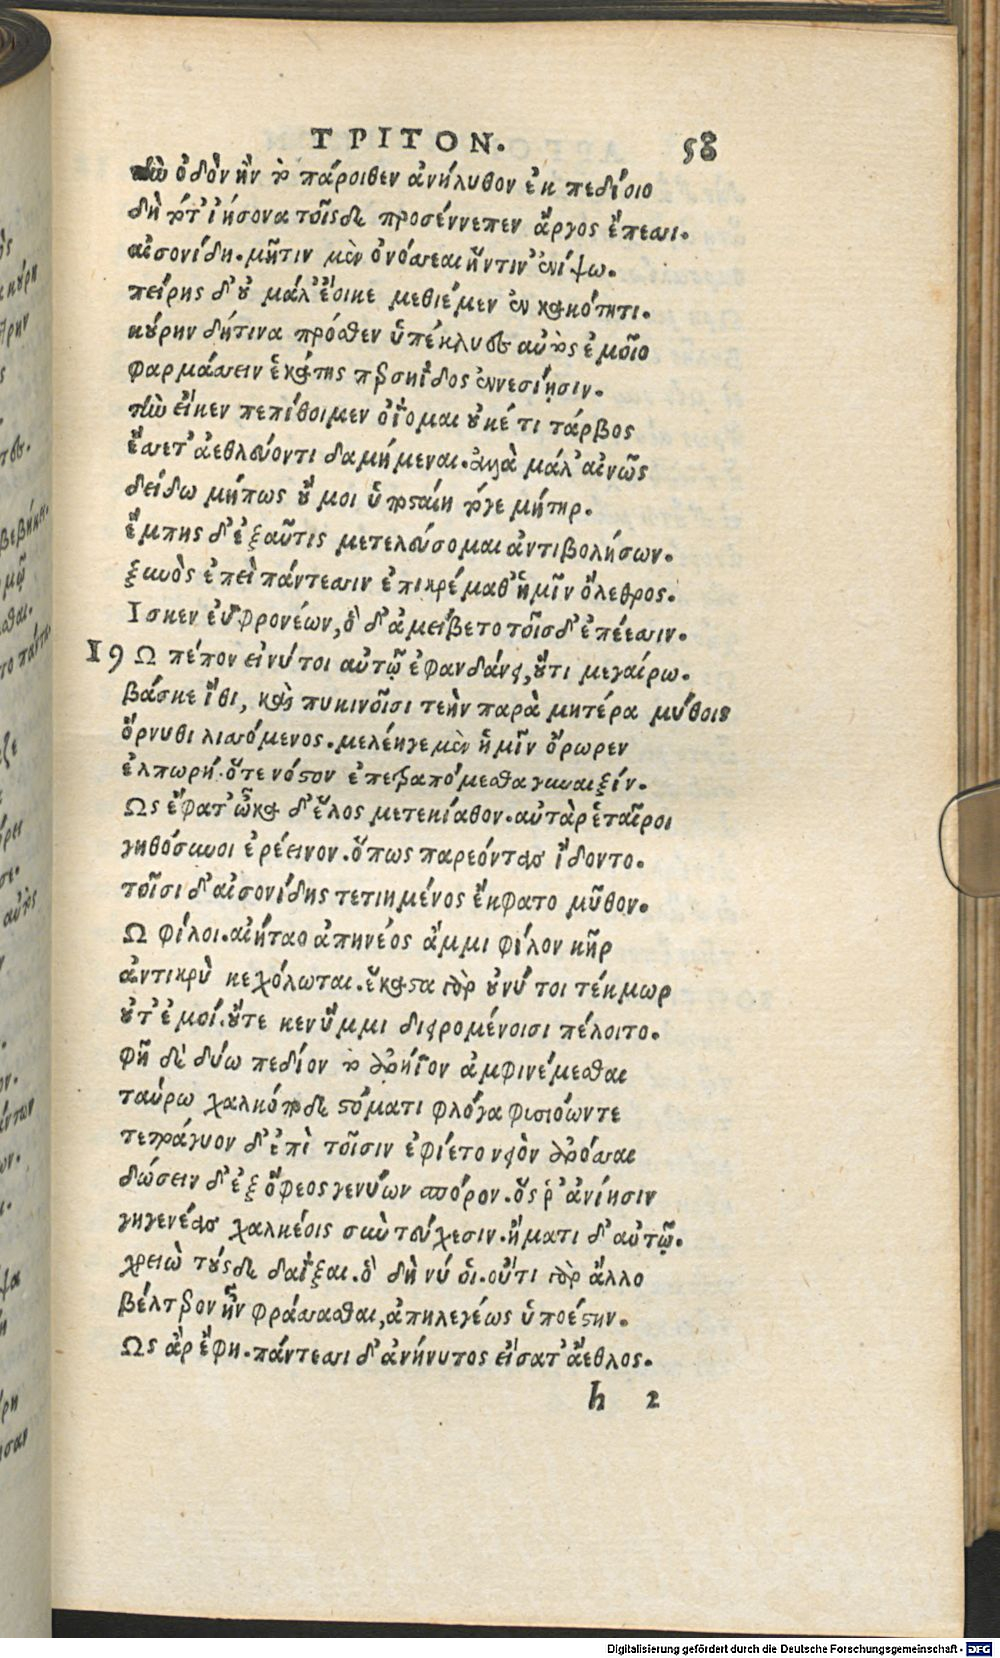 ΤΡΙΤΟΝ. 58
τὴν ὁδὸν ἣν τὸ πάροιθεν ἀνήλυθον ἐκ πεδίοιο
δὴ τότ' ἰήσονα τοῖσδε προσέννεπεν ἄργος ἔπεσσι.
αἰσονίδη. μῆτιν μὲν ὀνόσσεαι ἥντιν' ἐνίψω.
πείρης δ' οὐ μάλ' ἔοικε μεθιέμεν ἐν κακότητι.
κούρην δή τινα πρόσθεν ὑπέκλυες αὐτὸς ἐμοῖο
φαρμάσσειν ἑκάτης περσηΐδος ἐννεσίῃσιν.
τὴν εἴκεν πεπίθοιμεν ὀΐομαι οὐκέτι τάρβος
ἔσσετ' ἀεθλεύοντι δαμήμεναι. ἀλλὰ μάλ' αἰνῶς
δείδω μήπως οὔ μοι ὑποσταίη τόγε μήτηρ.
ἔμπης δ' ἐξαῦτις μετελεύσομαι ἀντιβολήσων.
ξυνὸς ἐπεὶ πάντεσσιν ἐπικρέμαθ' ἡμῖν ὄλεθρος.
Ισκεν ἐϋφρονέων, ὁ δ' ἀμείβετο τοῖσδ' ἐπέεσσιν.
19 Ω πέπον εἰ νύ τοι αὐτῷ ἐφανδάνει, οὔτι μεγαίρω.
βάσκε ἴθι, καὶ πυκινοῖσι τεὴν παρὰ μητέρα μύθοις
ὄρνυθι λισσόμενος. μελέη γε μὲν ἡμῖν ὄρωρεν
ἐλπωρή. ὅτε νόστον ἐπετραπόμεσθα γυναιξίν.
Ως ἔφατ' ὦκα δ' ἕλος μετεκίαθον. αὐτὰρ ἑταῖροι
γηθόσυνοι ἐρέεινον. ὅπως παρεόντας ἴδοντο.
τοῖσι δ' αἰσονίδης τετιημένος ἔκφατο μῦθον.
Ω φίλοι. αἰήταο ἀπηνέος ἄμμι φίλον κῆρ
ἀντικρὺ κεχόλωται. ἕκαστα γὰρ οὔ νύ τοι τέκμωρ
οὔτ' ἐμοί. οὔτε κεν ὔμμι διειρομένοισι πέλοιτο.
φῆ δὲ δύω πεδίον τὸ ἀρήϊον ἀμφινέμεσθαι
ταύρω χαλκόποδε στόματι φλόγα φισιόωντε
τετράγυον δ' ἐπὶ τοῖσιν ἐφίετο νειὸν ἀρόσσαι
δώσειν δ' ἐξ ὄφεος γενύων σπόρον. ὅς ῥ' ἀνίησιν
γηγενέας χαλκέοις σὺν τεύχεσιν. ἤματι δ' αὐτῷ.
χρειὼ τούσδε δαΐξαι. ὃ δή νύ οἱ. οὔτι γὰρ ἄλλο
βέλτερον ἦν φράσσασθαι, ἀπηλεγέως ὑποέστην.
Ως ἂρ ἔφη. πάντεσσι δ' ἀνήνυτος εἴσατ' ἄεθλος.
h 2
Digitalisierung gefördert durch die Deutsche Forschungsgemeinschaft - DFG